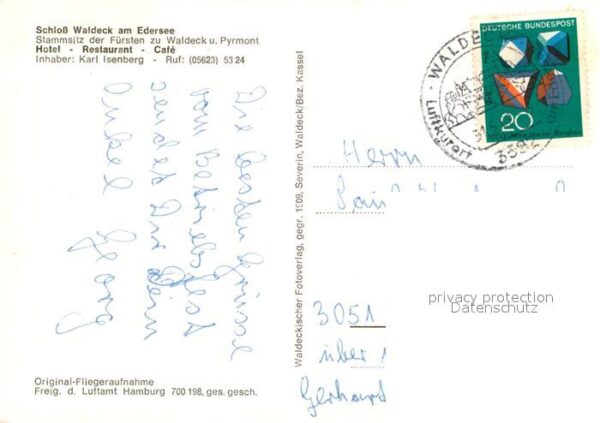 Schloß Waldeck am Edersee
Stammsitz der Fürsten zu Waldeck u. Pyrmont
Hotel - Restaurant - Café
Inhaber: Karl Isenberg - Ruf: (05623) 53 24
Die besten Grüsse
vom Betriebsfest
sendet Dir Dein
Onkel Georg
Original-Fliegeraufnahme
Freig. d. Luftamt Hamburg 700 198, ges. gesch.
Waldeckischer Fotoverlag, gegr. 1909, Severin, Waldeck/Bez. Kassel
DEUTSCHE BUNDESPOST
20
1000 Jahre Harzer Bergbau
WALDECK
Luftkurort
3592
Herrn
3051
über
Gerhard
privacy protection
Datenschutz